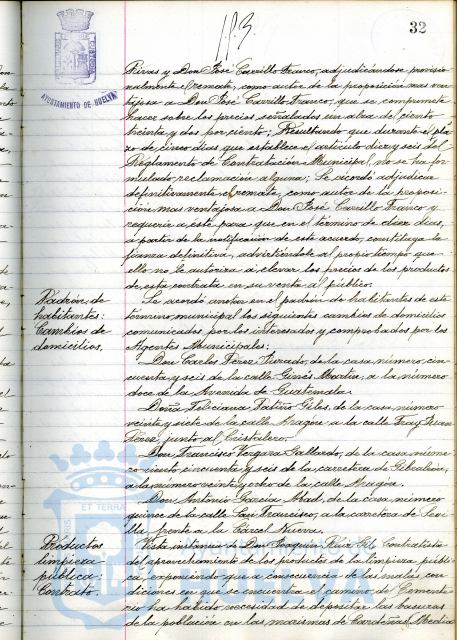 113.
32
AYUNTAMIENTO DE HUELVA
Rivas y Don José Carrillo Franco, adjudicándose provisio-
nalmente el remate, como autor de la proposición mas ven-
tajosa a Don José Carrillo Franco, que se compromete
hacer sobre los precios señalados un alza del ciento
treinta y dos por ciento; Resultando que durante el pla-
zo de cinco días que establece el artículo diez y seis del
Reglamento de Contratación Municipal, no se ha for-
mulado reclamación alguna; Se acordó adjudicar
definitivamente el remate, como autor de la proposi-
ción mas ventajosa a Don José Carrillo Franco y
requerir a este para que en el término de diez días,
a partir de la notificación de este acuerdo, constituya la
fianza definitiva, advirtiéndole al propio tiempo que
ello no le autoriza a elevar los precios de los productos
de esta contrata en su venta al público.
Padrón de
habitantes:
Cambios de
domicilios.
Se acordó anotar en el padrón de habitantes de este
término municipal los siguientes cambios de domicilios
comunicados por los interesados y comprobados por los
Agentes Municipales:
Don Carlos Pérez Jurado, de la casa número cin-
cuenta y seis de la calle Ginés Martín, a la número
doce de la Avenida de Guatemala.
Doña Feliciana Patiño Giles, de la casa número
veinte y siete de la calle Aragón a la calle Fray Juan
Pérez, junto al Cristalero.
Don Francisco Vergara Gallardo, de la casa núme-
ro ciento cincuenta y seis de la carretera de Gibraleón,
a la número veinte y ocho de la calle Aragón.
Don Antonio García Abad, de la casa, número
quince de la calle San Francisco, a la carretera de Sevi-
lla frente a la Cárcel Nueva.
Productos
limpieza
pública:
Contrato.
Vista instancia de Don Joaquín Ruiz Contratista
del aprovechamiento de los productos de la limpieza públi-
ca, exponiendo que a consecuencia de las malas con-
diciones en que se encuentra el camino del Cemente-
rio ha habido necesidad de depositar las basuras
de la población en las marismas de Cardeñas, Media
ET TERRA